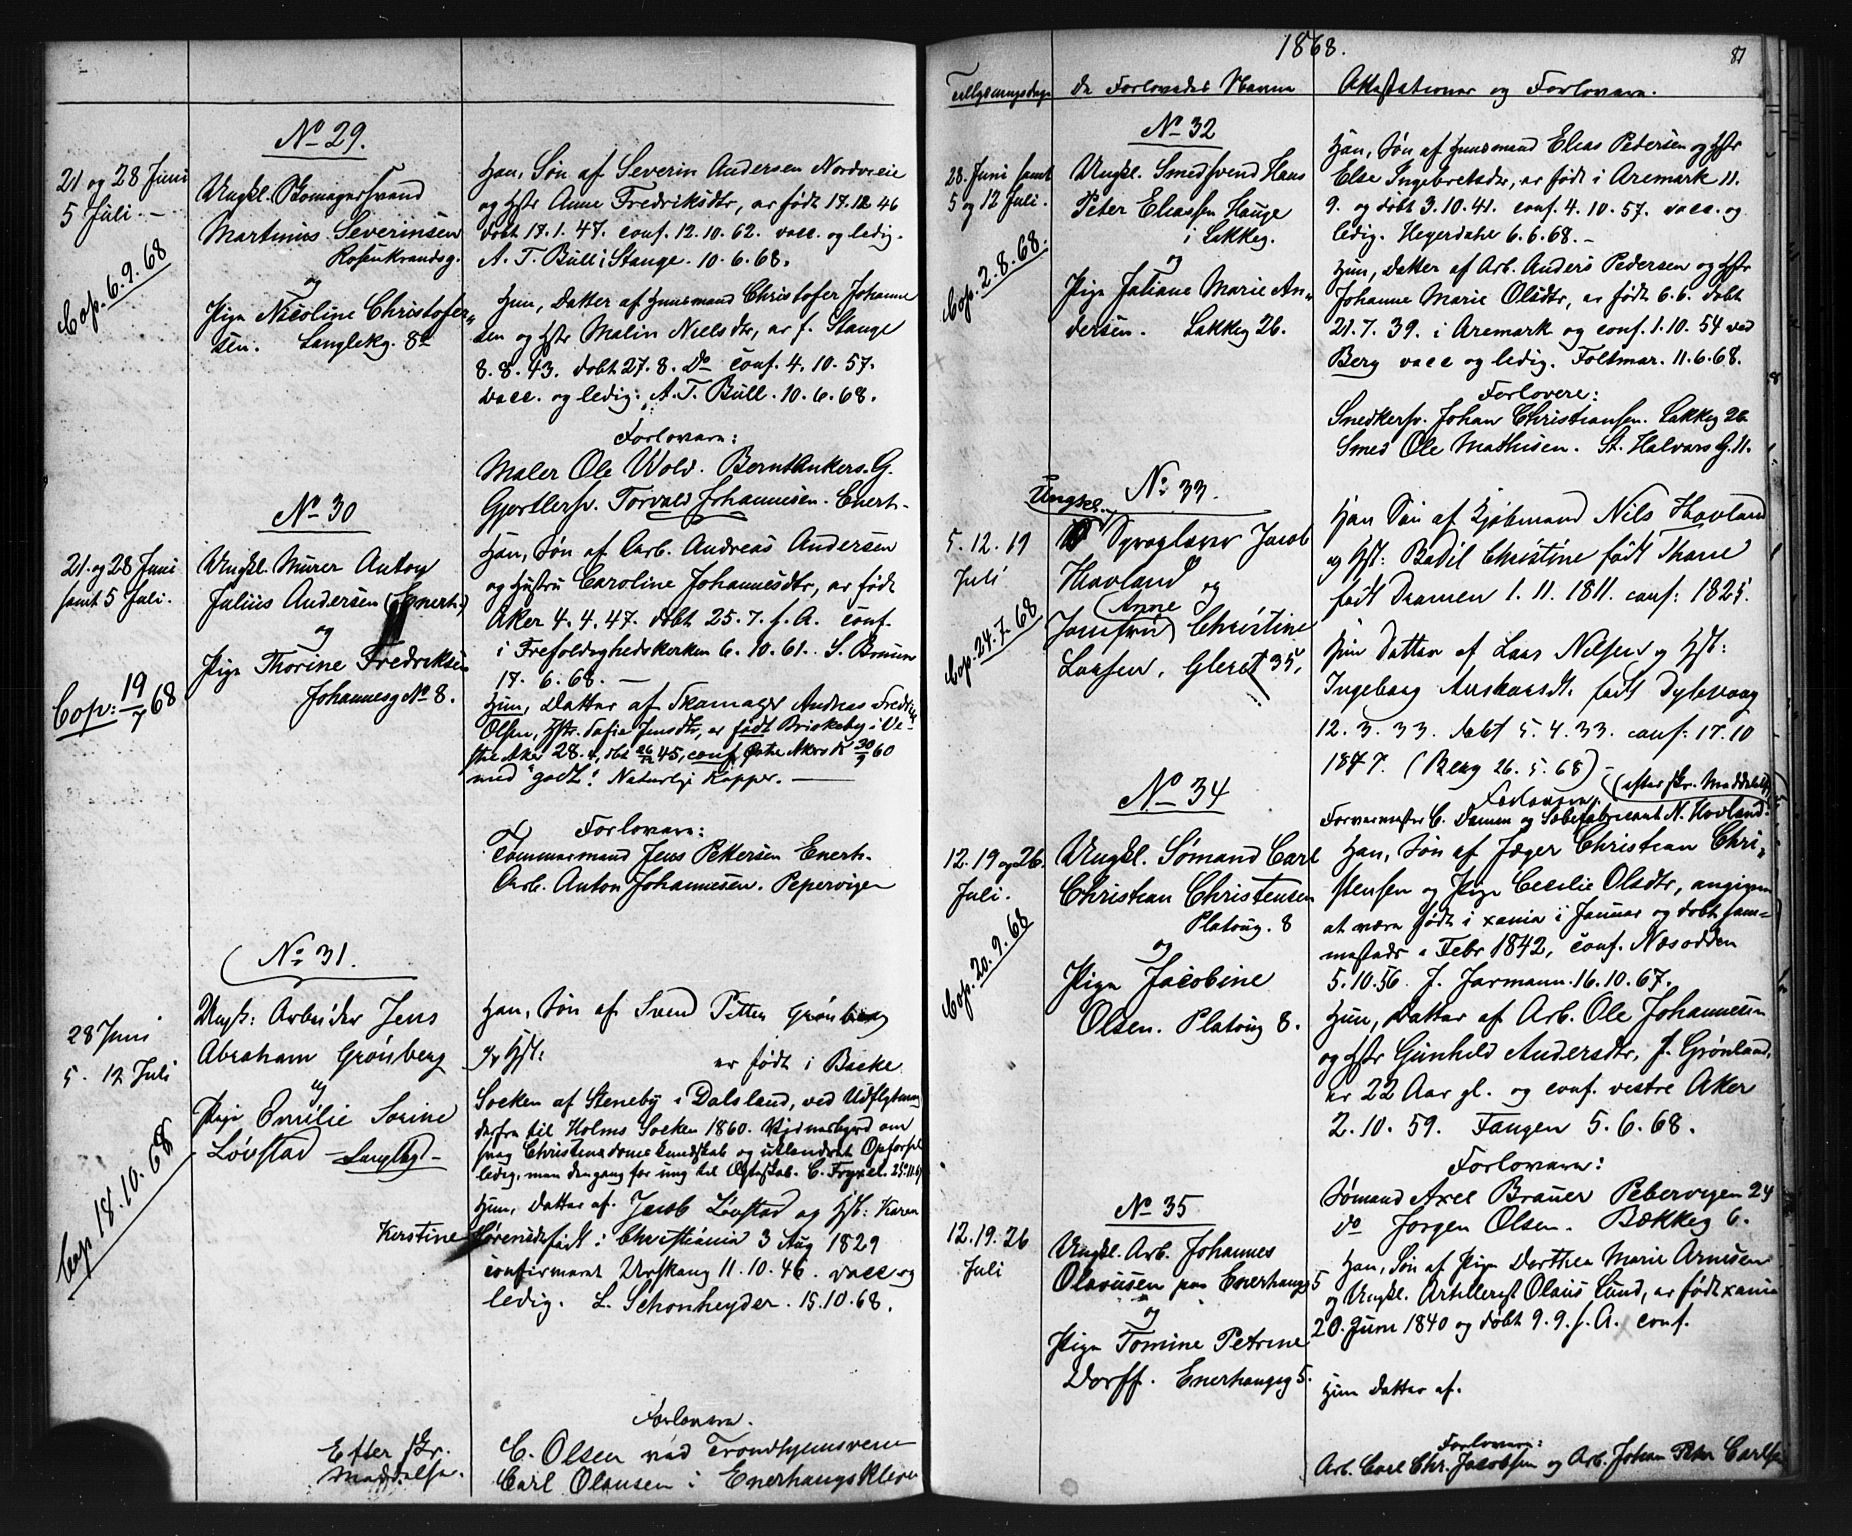 No 29.
21 og 28 Juni
5 Juli. –
Cop. 6.9.68
Ungkl. Skomagersvend
Martinius Severinsen
Rosenkrandsg.
og
Pige Nicoline Christofer-
sen. Langlekg. 8a
Han, Søn af Severin Andersen Nordveie
og Hstr Anne Fredriksdtr, er født 17.12 46
døbt 17.1.47. conf. 12.10.62. vacc. og ledig.
A. T. Bull i Stange. 10.6.68.
Hun, Datter af Huusmand Christofer Johanne
sen og Hstr Malin Nielsdtr, er f. Stange
8.8.43. døbt 27.8. Do conf. 4.10.57.
vacc. og ledig. A. T. Bull. 10.6.68.
Forlovere:
Maler Ole Wold. Bernt Ankers. G.
Gjørtlersv. Torvald Johannesen. Enerh.
No 30
21 og 28 Juni
samt 5 Juli.
Cop: 19/7 68
Ungkl. Murer Anton
Julius Andersen (Enerh.)
og
Pige Thorine Fredriksen
Johannesg No 8.
Han, Søn af Arb. Andreas Andersen
og Hustru Caroline Johannesdtr, er født
Aker 4.4.47. døbt 25.7. s. A. conf.
i Trefoldighedskerken 6.10.61. S. Bruun
17.6.68. –
Hun, Datter af Skomager Andreas Fredrik
Olsen, Hstr. Sofie Jensdtr, er født Briskeby i Ve-
stre Aker 28. døbt 26/12 45, conf. Østre Akers K 30/9 60
med "godt". Naturlige Kopper. –
Forlovere:
Tømmermand Jens Pettersen Enerh.
Arb. Anton Johannesen. Pepervigen
No 31.
28 Juni
5. 12 Juli
Cop 18.10.68
Ungk: Arbeider Jens
Abraham Grönberg
og
Pige Emilie Sorine
Løvstad – Langlegt –
Han, Søn af Svend Petter Grönberg
og Hst: er født i Backe
Socken af Steneby i Dalsland, ved Udflytning
derfra til Holms Socken 1860. Vidnesbyrd om
svag Christendomskundskab og utlandsk Opførsel
ledig, men dengang for ung til Egteskab. C. Fryxel.
Hun, Datter af Jacob Løvstad og Hst: Karen
Kirstine Sørensd. født i Christiania 3 Aug 1829
confirmeret Urskoug 11.10.46. vacc og
ledig. L. Schønheyder. 15.10.68.
Forlovere.
C. Olsen ved Trondhjemsveien
Carl Olausen i Enerhaugs Kleven
Efter fhr.
Maddelse.
1868.
81
Tillysningsdage
De Forlovedes Navne
Attestationer og Forlovere.
No 32
28. Juni samt
5 og 12 Juli.
Cop. 2.8.68.
Ungkl. Smedsvend Hans
Peter Eliassen Hauge
i Lakkeg.
og
Pige Juliane Marie An-
dersen. Lakkeg 26.
Han, Søn af Huusmand Elias Pedersen og Hstr
Else Ingebretsdtr, er født i Aremark 11.
9. og døbt 3.10.41. conf. 4.10.57. vacc. og
ledig. Heyerdahl 6.6.68. –
Hun, Datter af Arb. Anders Pedersen og Hstr
Johanne Marie Olsdtr, er født 6.6. døbt
21.7.39. i Aremark og conf. 1.10.54 ved
Berg vacc og ledig. Foltmar. 11.6.68.
Forlovere:
Snedkersv. Johan Christiansen. Lakkeg 26
Smed Ole Mathisen. St. Halvards G. 11.
No 33.
5. 12. 19
Juli
Cop. 24.7.68
Ungkl.
Spraglærer Jacob
Hovland og
Anne
Jomfru Christine
Larsen. Gleret 35,
Han Søn af Kjøbmand Nils Hovland
og Hst: Bodil Christine født Thane
født Dramen 1.11.1811. conf: 1825.
Hun Datter af Lars Nilsen og Hst:
Ingeborg født Dybevaag
12.3.33. døbt 5.4.33. conf: 17.10
1847. (Berg 26.5.68) –
Forlovere: (efter fhr. Maddelelse)
Farvermester C. Damen og Sæbefabricant N. Hovland.
No 34
12. 19 og 26.
Juli.
Cop. 20.9.68
Ungkl. Sømand Carl
Christian Christensen
Platoug. 8
og
Pige Jacobine
Olsen. Platoug 8.
Han, Søn af Jæger Christian Chri-
stensen og Pige Cecilie Olsdtr, angiven
at være født i Xania i Januar og døbt sam-
mesteds i Febr 1842, conf. Næsodden
5.10.56. J. Jarmann. 16.10.67.
Hun, Datter af Arb. Ole Johannesen
og Hstr Gunhild Andersdtr, f. Grønland,
er 22 Aar gl. og conf. vestre Aker
2.10.59. Fangen 5.6.68.
Forlovere:
Sømand Axel Brauer Pebervigen 24
do Jørgen Olsen. Bækkeg 6.
No 35
12. 19. 26
Juli
Ungkl. Arb. Johannes
Olausen paa Enerhaugs 5
og
Pige Tomine Petrine
Dorff. Enerhaugsg 5.
Han, Søn af Pige Dorthea Marie Arnesen
og Ungkl. Artillerist Olaus Lund, er født Xania
20. Juni 1840 og døbt 9.9. s. A. conf.
Hun Datter af.
Forlovere:
Arb. Carl Chr. Jacobsen og Arb. Johan Peter Carlsen